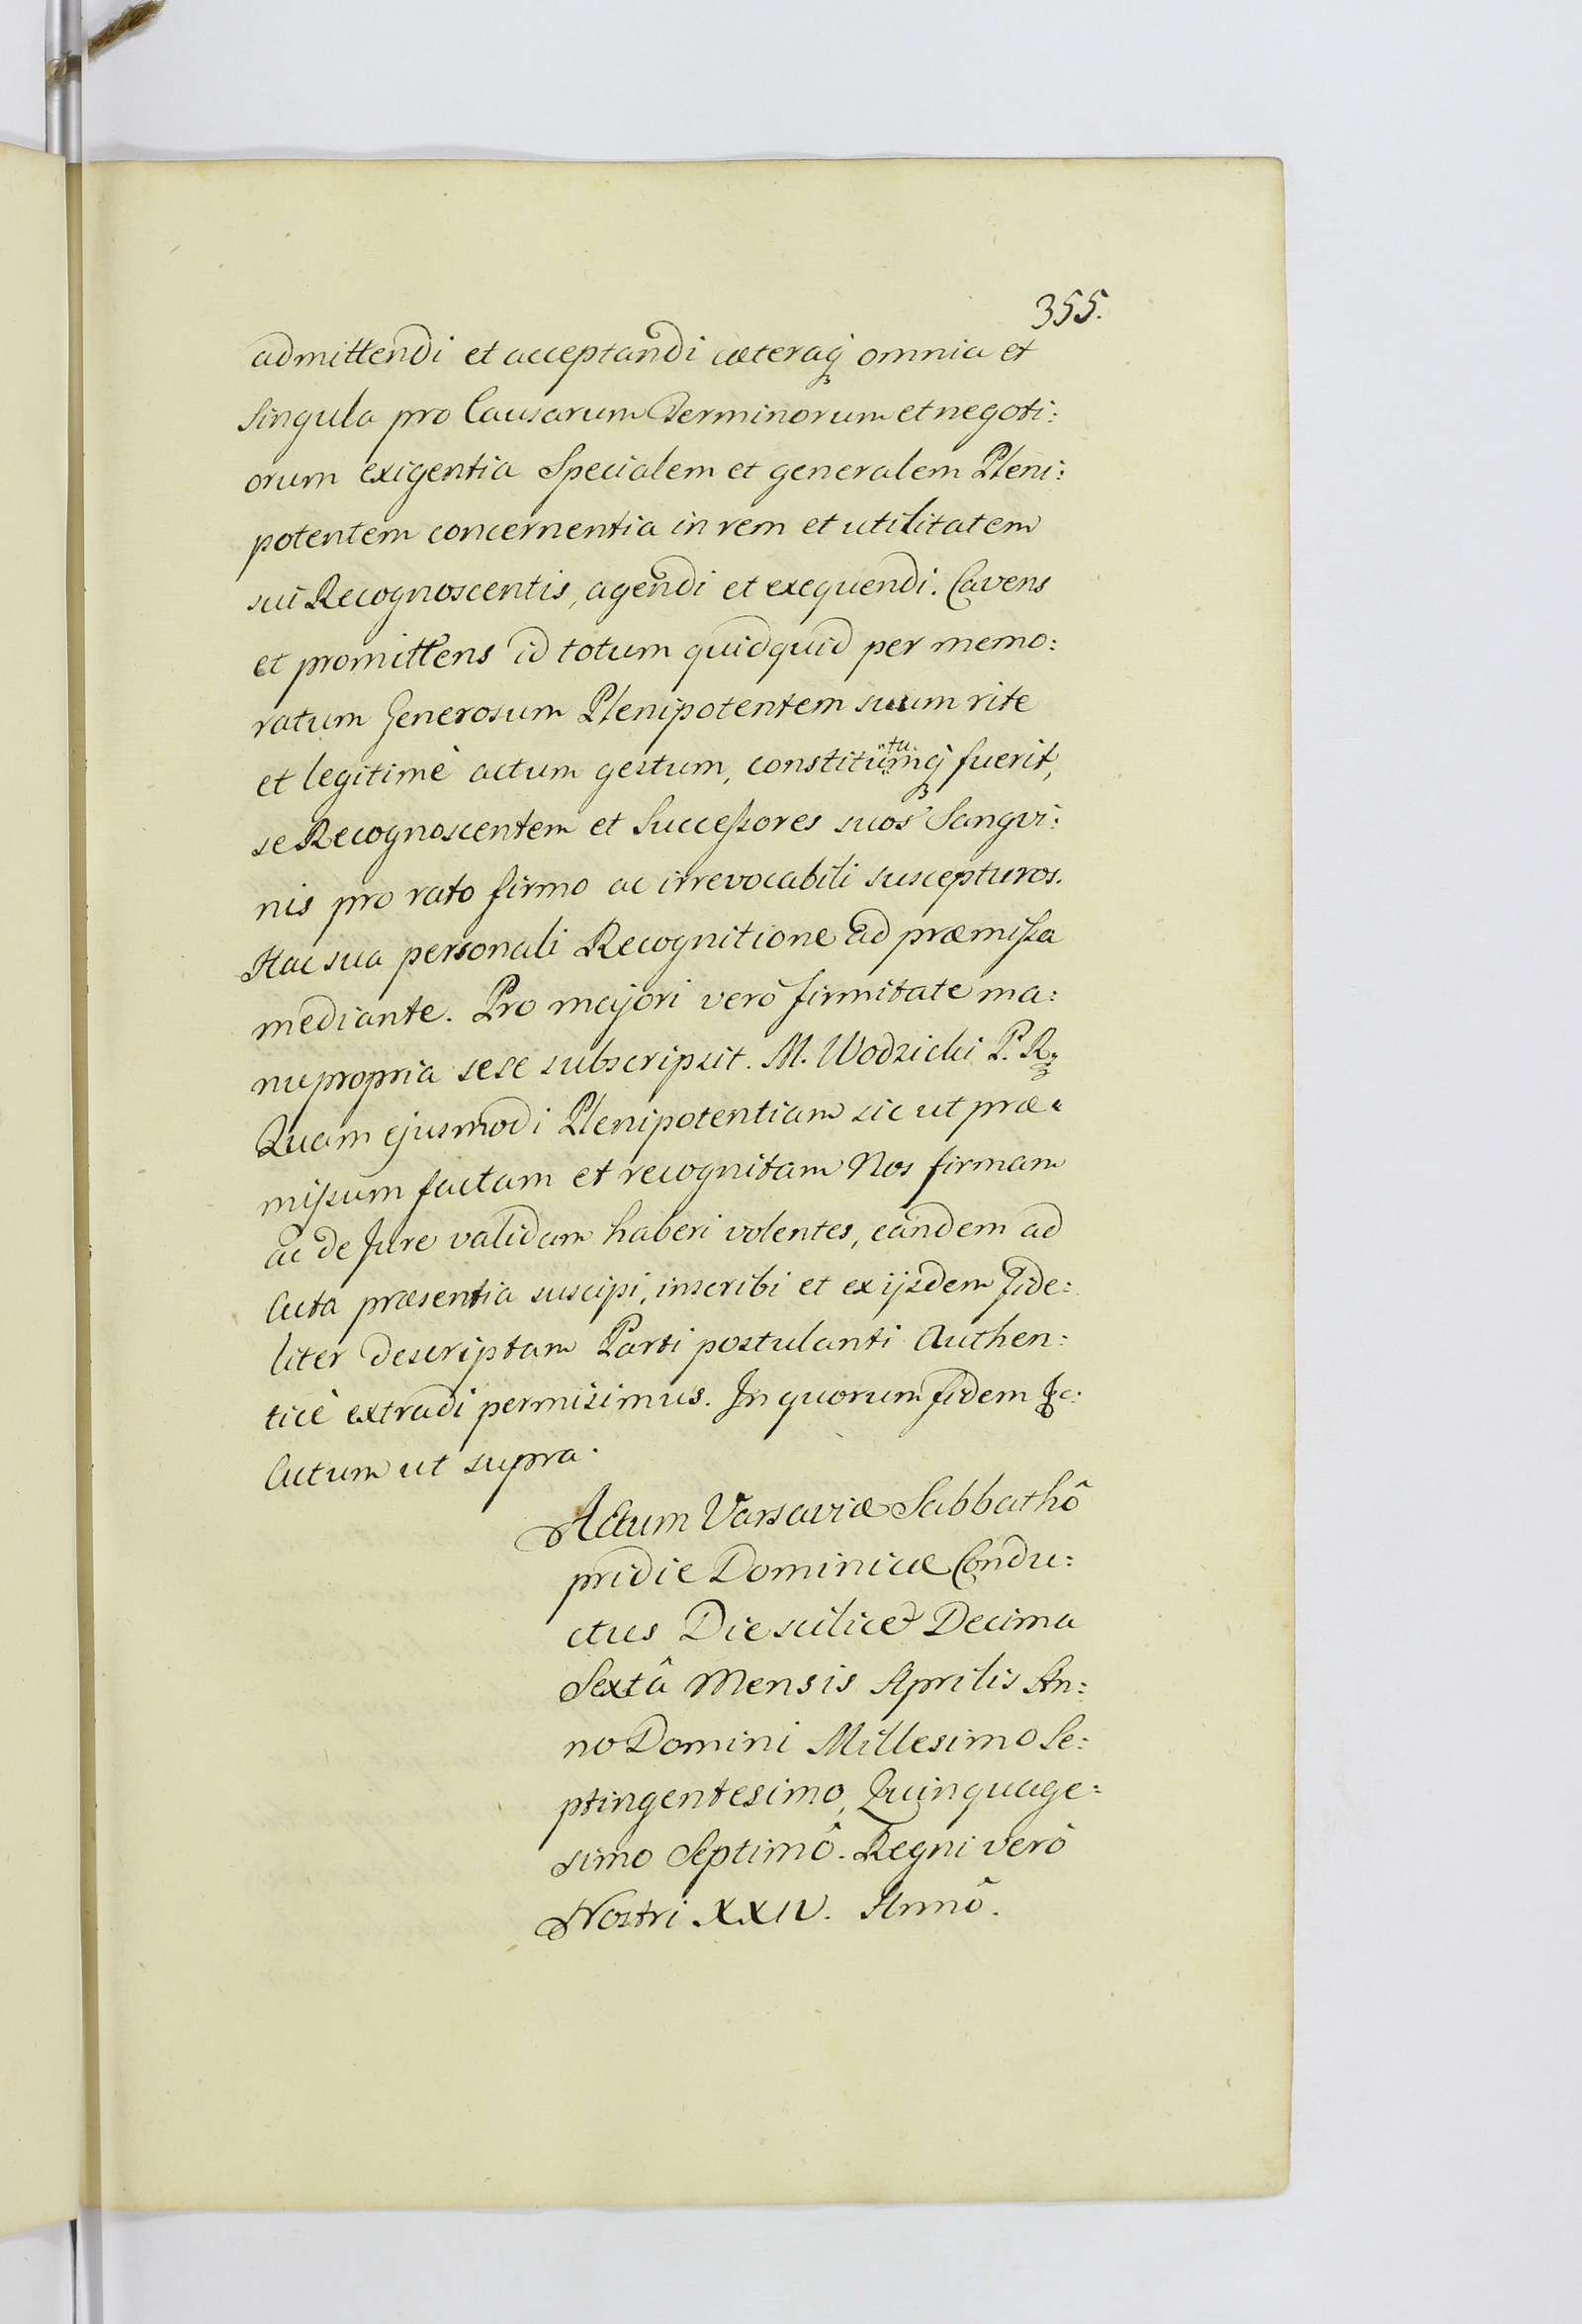 355.
admittendi et acceptandi cæteraq́ꝫ omnia et
Singula pro Causarum Terminorum et negoti:
orum exigentia Specialem et generalem Pleni:
potentem concernentia in rem et utilitatem
sui Recognoscentis, agendi et exequendi. Cavens
et promittens id totum quidquid per memo:
ratum Generosum Plenipotentem suum rite
et legitimè actum gestum, constitutumq́ꝫ fuerit,
se Recognoscentem et Succeſsores suos Sangvi:
nis pro rato firmo ac irrevocabili suscepturos.
Hac sua personali Recognitione ad præmiſsa
mediante. Pro majori verò firmitate ma:
nu propria sese subscripsit. M. Wodzicki P. R.
Quam ejusmodi Plenipotentiam sic ut præ:
miſsum factam et recognitam Nos firmam
ac de Jure validam haberi volentes, eandem ad
Acta præsentia suscipi, inscribi et ex ijsdem fide:
liter descriptam Parti postulanti Authen:
ticè extradi permisimus. In quorum fidem &c:
Actum ut supra.
Actum Varsaviæ Sabbathô
pridie Dominicæ Condu:
ctus Die scilicet Decima
Sextâ Mensis Aprilis An:
no Domini Millesimo Se:
ptingentesimo, Quinquage:
simo Septimô. Regni verò
Nostri XXIV. Annô.